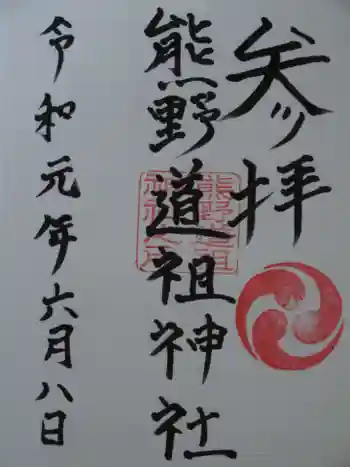 参拝
熊野道祖神社
令和元年六月八日